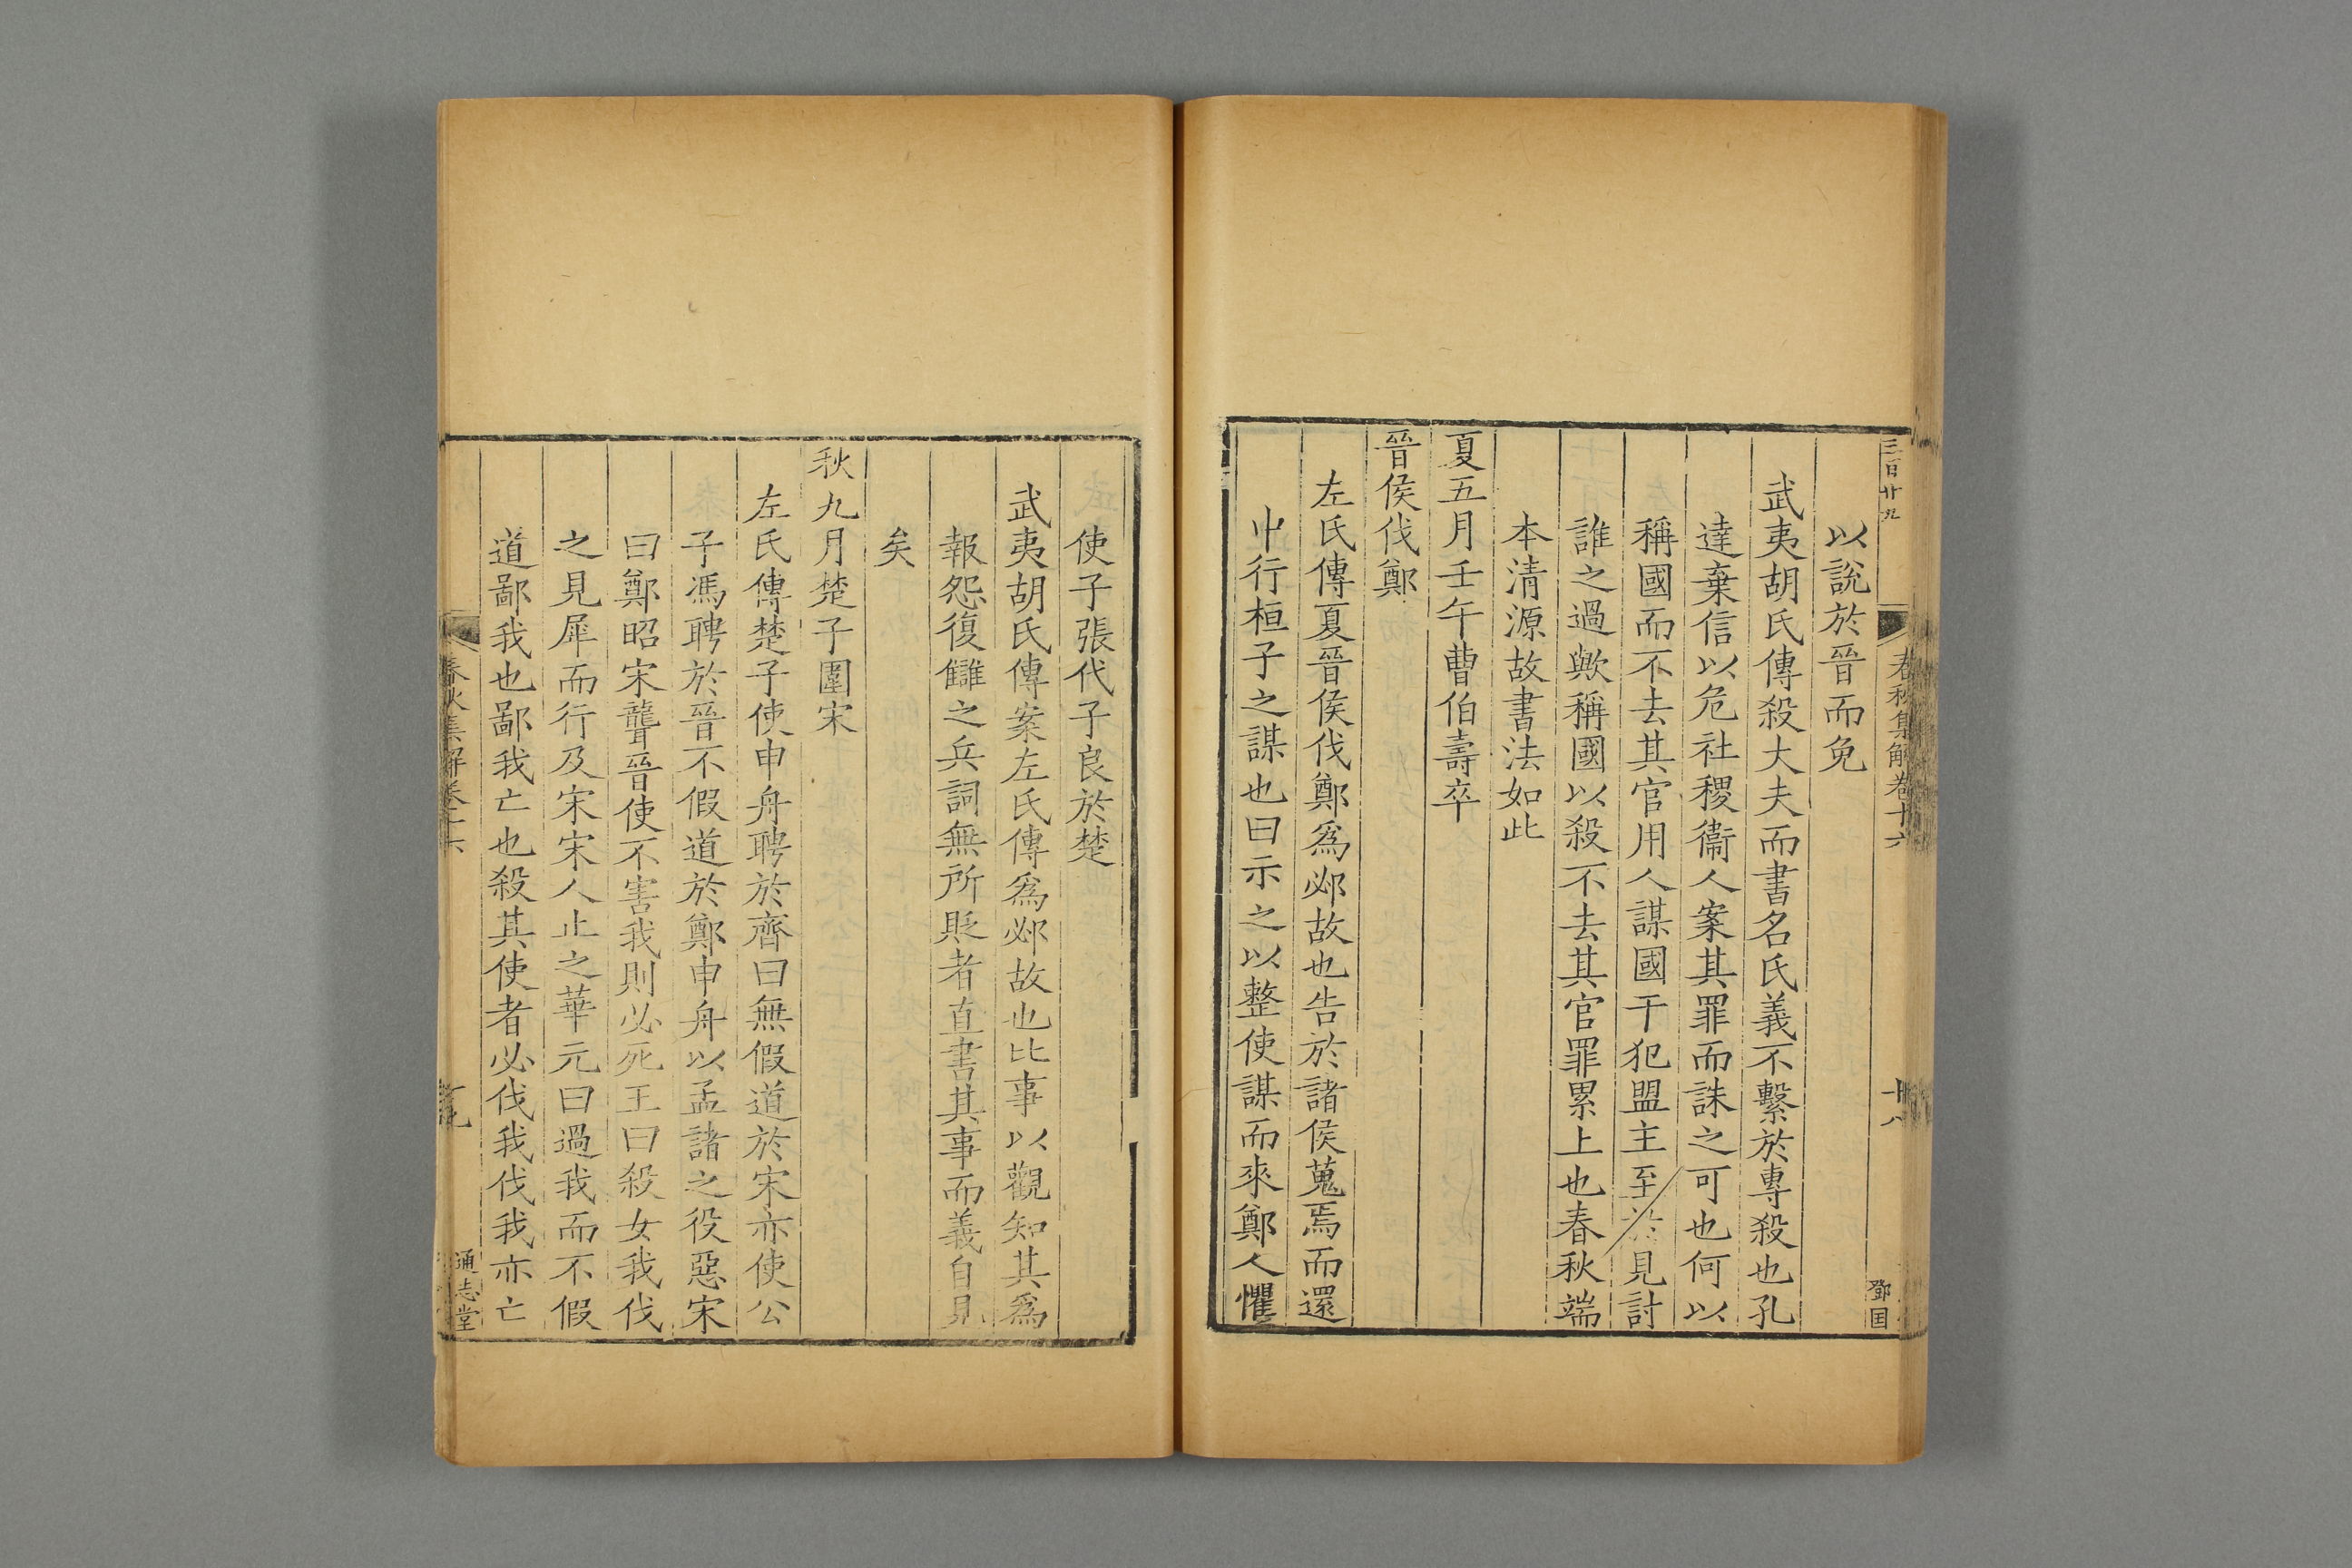 三百廿九
春秋集解卷十六
十八
鄧国
以說於晉而免
武夷胡氏傳殺大夫而書名氏義不繫於專殺也孔
達棄信以危社稷衞人案其罪而誅之可也何以
稱國而不去其官用人謀國干犯盟主至於見討
誰之過歟稱國以殺不去其官罪累上也春秋端
本清源故書法如此
夏五月壬午曹伯壽卒
晉侯伐鄭
左氏傳夏晉侯伐鄭爲邲故也告於諸侯蒐焉而還
中行桓子之謀也曰示之以整使謀而來鄭人懼
使子張代子良於楚
武夷胡氏傳案左氏傳爲邲故也比事以觀知其爲
報怨復讎之兵詞無所貶者直書其事而義自見
矣
秋九月楚子圍宋
左氏傳楚子使申舟聘於齊曰無假道於宋亦使公
子馮聘於晉不假道於鄭申舟以孟諸之役惡宋
曰鄭昭宋聾晉使不害我則必死王曰殺女我伐
之見犀而行及宋宋人止之華元曰過我而不假
道鄙我也鄙我亡也殺其使者必伐我伐我亦亡
春秋集解卷十六
通志堂